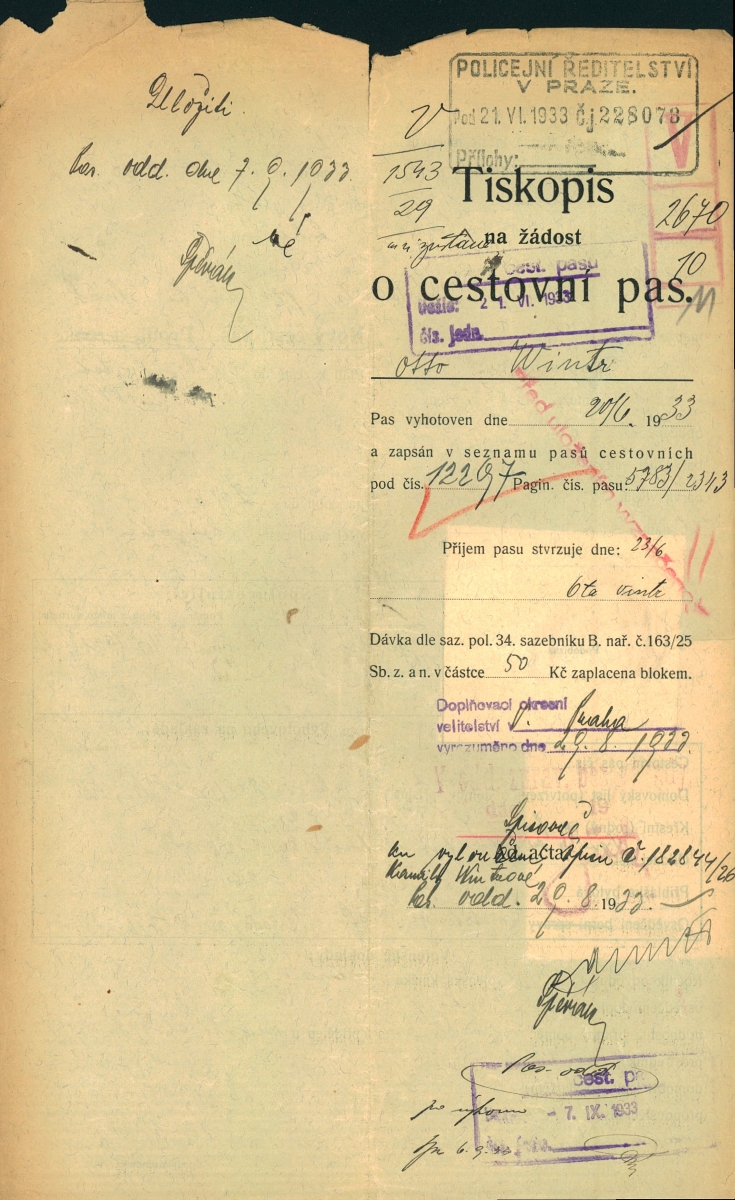 Uložiti.
Pas. odd. dne 7. 9. 1933
POLICEJNÍ ŘEDITELSTVÍ
V PRAZE.
Pod 21. VI. 1933 Čj 228078
Přílohy:
V
1543
29
Tiskopis
2670
10
na žádost
cest. pasů
o cestovní pas.
došlo: 21. VI. 1933
čís. jedn.
Otto Wintr
Pas vyhotoven dne 20/6. 1933
a zapsán v seznamu pasů cestovních
pod čís. 12297 Pagin. čís. pasu: 5783/2343
Před uložením
Příjem pasu stvrzuje dne: 23/6
Ota Vintr
Dávka dle saz. pol. 34. sazebníku B. nař. č. 163/25
Sb. z. a n. v částce 50 Kč zaplacena blokem.
Doplňovací okresní
velitelství v Praha
vyrozuměno dne 29. 8. 1933
Spisovně
ad acta
č. 182844/26
Kamily Wintrové
Pas. odd. 29. 8. 1933.
Pas. odd.
cest. pa
- 7. IX. 1933
6. 9. 33